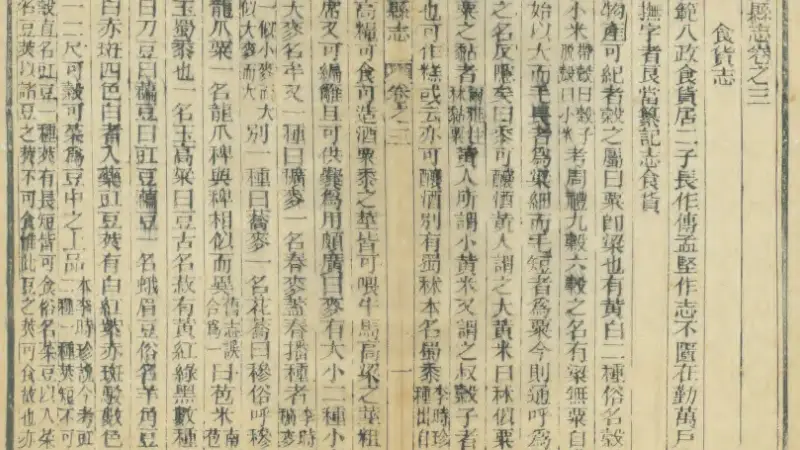 縣志卷之三
食貨志
範八政食貨居二子長作傳孟堅作志不匱在勤萬戶
撫字者良當纂記志食貨
物產可紀者穀之屬曰粟卽粱也有黃白二種俗名穀
小米帶殼曰穀子脫殼曰小米考周禮九穀六穀之名有粱無粟自
始以大而毛長者爲粱細而毛短者爲粟今則通呼爲
之名反隱矣曰黍可釀酒黃人謂之大黃米曰秫似粟
粟之黏者人所謂小黃米又謂之穀子者
也可作糕或云亦可釀酒別有蜀秫本名蜀黍李時珍種出自
縣志 卷之三 一
高糧可食可造酒粟黍之莖皆可喂牛馬高粱之莖粗
席又可編籬且可供爨爲用頗廣曰麥有大小二種小
大麥名牟又一種曰穬麥一名春麥蓋春播種者李時穬麥
似小麥而大似大麥而大別一種曰蕎麥一名花蕎曰穇俗呼穇
龍爪粟一名龍爪稗與稗相似而異舊志誤合爲一曰芭米南芭
玉蜀黍也一名玉高粱曰豆古名菽有黃紅綠黑數種
曰刀豆曰藊豆曰豇豆藊豆一名蛾眉豆俗名羊角豆
白赤斑四色白者入藥豇豆莢有白紅紫赤斑駁數色
一二尺可穀可菜爲豆中之上品本李時珍說今考豇二種一種莢短不可
穀直名豇豆一種莢有長短皆可食俗名菜豆以入菜
名豆莢以諸豆之莢不可食惟此豆之莢可食故也亦